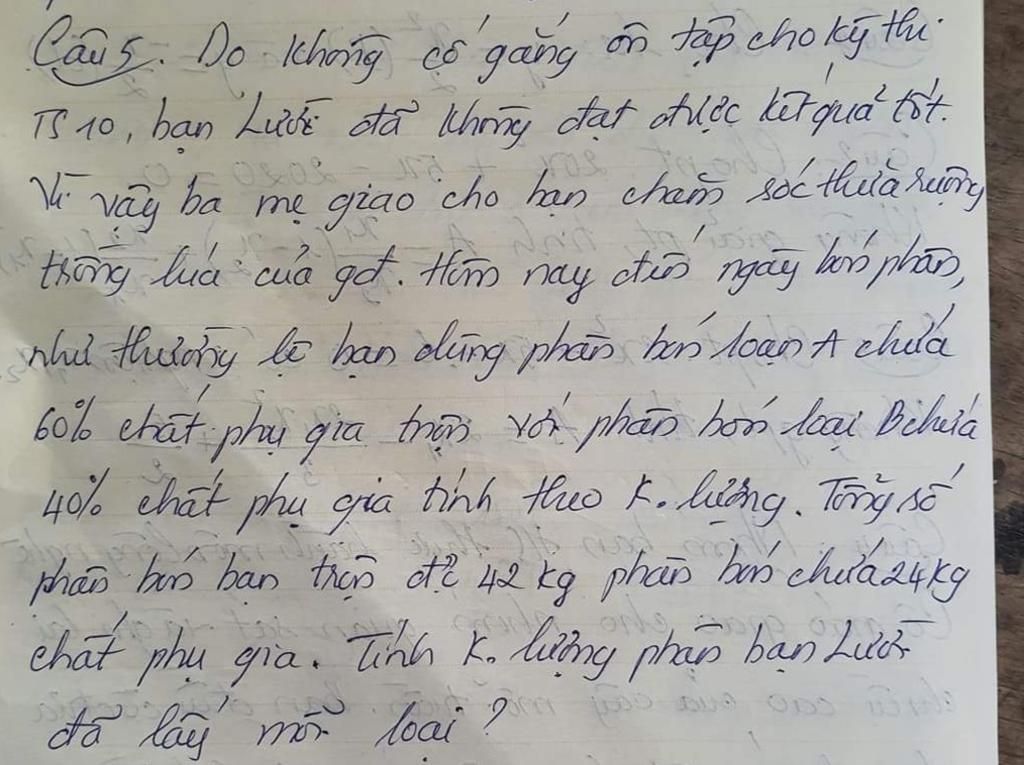 Câu 5. Do không cố gắng ôn tập cho kỳ thi
TS 10, bạn Lười đã không đạt được kết quả tốt.
Vì vậy ba mẹ giao cho bạn chăm sóc thửa ruộng
trồng lúa của gđ. Hôm nay đến ngày bón phân,
như thường lệ bạn dùng phân bón loại A chứa
60% chất phụ gia trộn với phân bón loại B chứa
40% chất phụ gia tính theo k. lượng. Tổng số
phân bón bạn trộn đc 42 kg phân bón chứa 24 kg
chất phụ gia. Tính k. lượng phân bạn Lười
đã lấy mỗi loại?